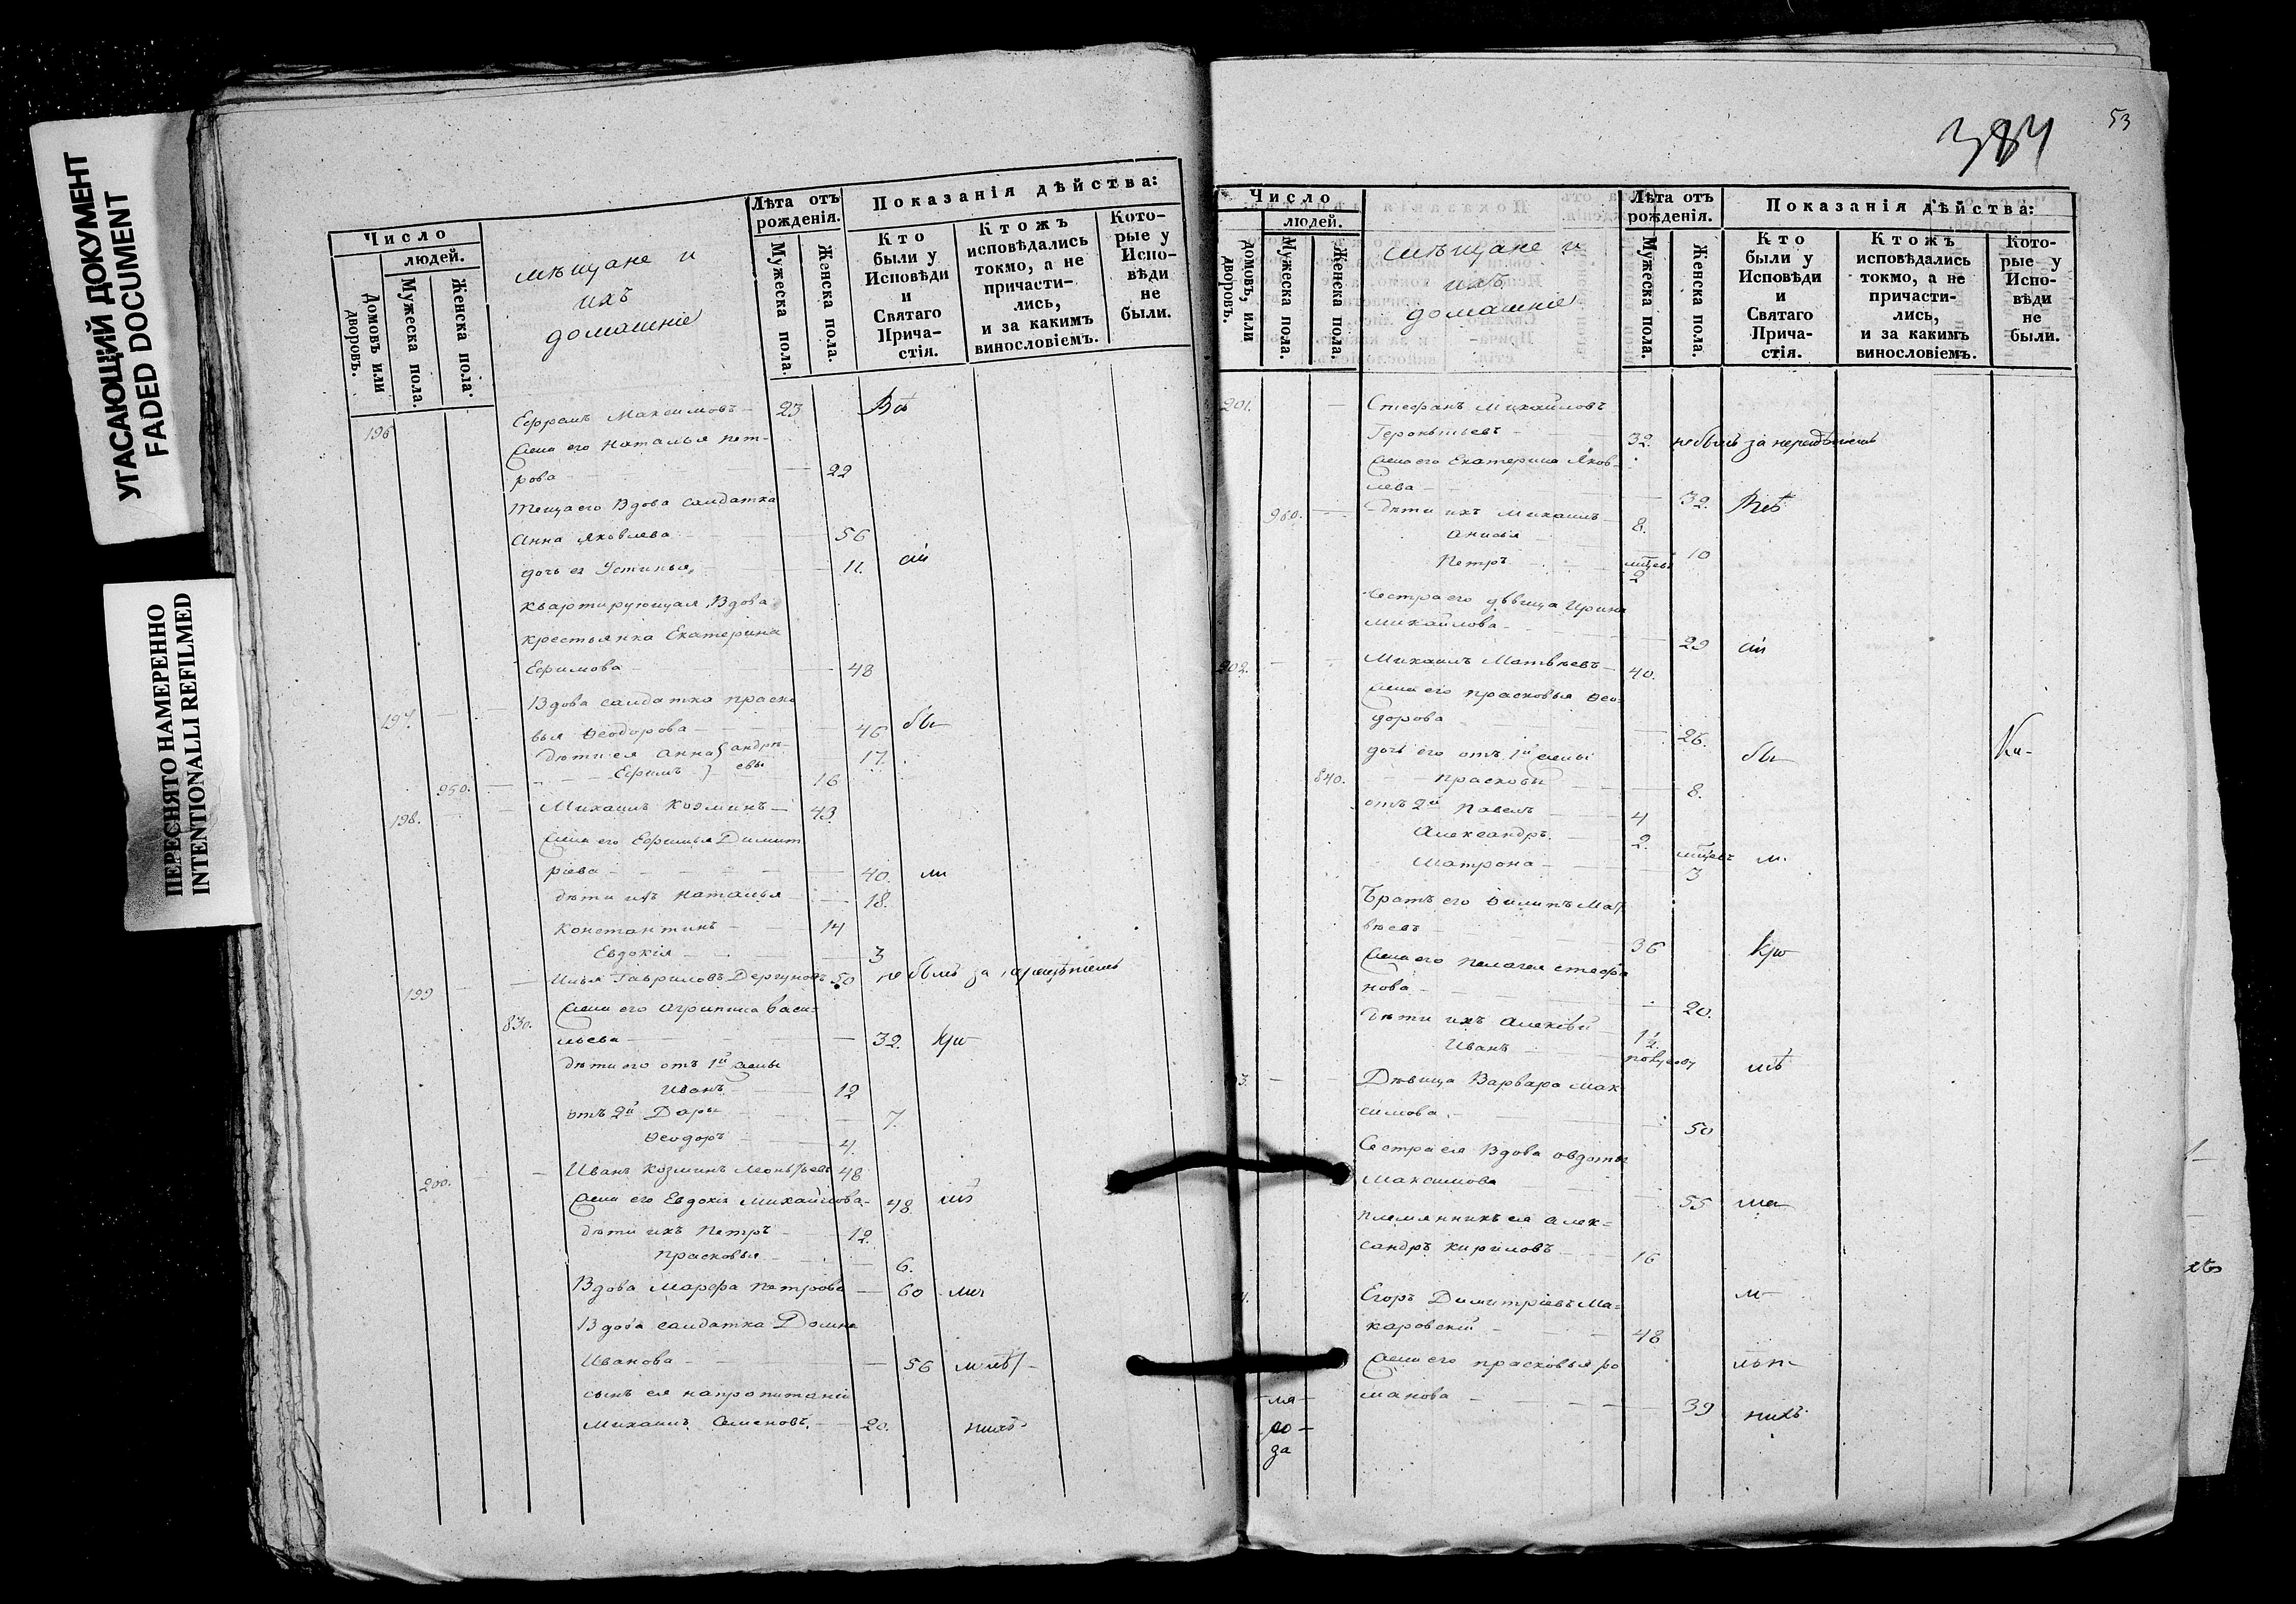 УГАСАЮЩИЙ ДОКУМЕНТ
FADED DOCUMENT
ПЕРЕСНЯТО НАМЕРЕННО
INTENTIONALLI REFILMED
Число
людей.
Домовъ или дворовъ.
Мужеска пола.
Женска пола.
мѣщане и
ихъ
домашніе
Лѣта отъ рожденія.
Мужеска пола.
Женска пола.
Показанія дѣйства:
Кто были у Исповѣди и Святаго Прича-стія.
Ктожъ исповѣдались токмо, а не причасти-лись, и за какимъ винословіемъ.
Кото-рые у Испо-вѣди не были.
196 Ефремъ Максимовъ — 23
жена его Наталья Пет-
рова — 22
Теща его Вдова салдатка
Анна Яковлева — 56
дочь ея Устинья — 11.
квартирующая Вдова
крестьянка Екатерина
Ефимова — 48
197. Вдова салдатка Праско
вья Ѳеодорова — 46
дѣти ея Анна андре- 17.
950. Ефимъ евы 16
198. Михаилъ Козминъ — 43
жена его Ефимья Димит
ріева — 40.
дѣти ихъ Наталья — 18.
Константинъ — 14
Евдокія — 3
199 Илья Гавриловъ Дергуновъ 50 не былъ за нерадѣніемъ
жена его Агрипина Васи-
830. льева — 32.
дѣти его отъ 1й жены
Иванъ — 12
отъ 2й Дарья — 7.
Ѳеодоръ — 4.
200. Иванъ Козминъ Леонтьевъ 48
жена его Евдокія Михайлова — 48.
дѣти ихъ Петръ — 12.
Прасковья — 6.
Вдова Марфа Петрова — 60
Вдова салдатка Домна
Иванова — 56
сынъ ея на пропитаніи
Михаилъ Семеновъ. — 20. нихъ
384
53
Число
людей.
домовъ, или дворовъ.
Мужеска пола.
Женска пола.
мѣщане и
ихъ
домашніе
Лѣта отъ рожденія.
Мужеска пола.
Женска пола.
Показанія дѣйства:
Кто были у Исповѣди и Святаго Прича-стія.
Ктожъ исповѣдались токмо, а не причасти-лись, и за какимъ винословіемъ.
Кото-рые у Испо-вѣди не были.
201. Стефанъ Михайловъ
Геронтьевъ — 32. не былъ за нерадѣніемъ
жена его Екатерина Яков-
лева — 32.
960. дѣти ихъ Михаилъ — 8.
Анисья — 10
Петръ — 2
Сестра его дѣвица Ирина
Михайлова — 29
202. Михаилъ Матвѣевъ — 40.
жена его Прасковья Ѳео-
дорова — 26.
дочь его отъ 1й жены
840. Прасковья — 8.
отъ 2й Павелъ — 4
Александръ. — 2.
Матрона — 3
Братъ его Филипъ Мат
вѣевъ — 36
жена его Пелагея Стефа
нова — 20.
дѣти ихъ Алексѣй
Иванъ
3. Дѣвица Варвара Мак
симова. — 50
Сестра ея Вдова Овдотья
Максимова — 55
племянникъ ея Алек-
сандръ Кириловъ — 16
Егоръ Димитріевъ Ма-
каровскій — 48
жена его Прасковья Ро
манова — 39 нихъ